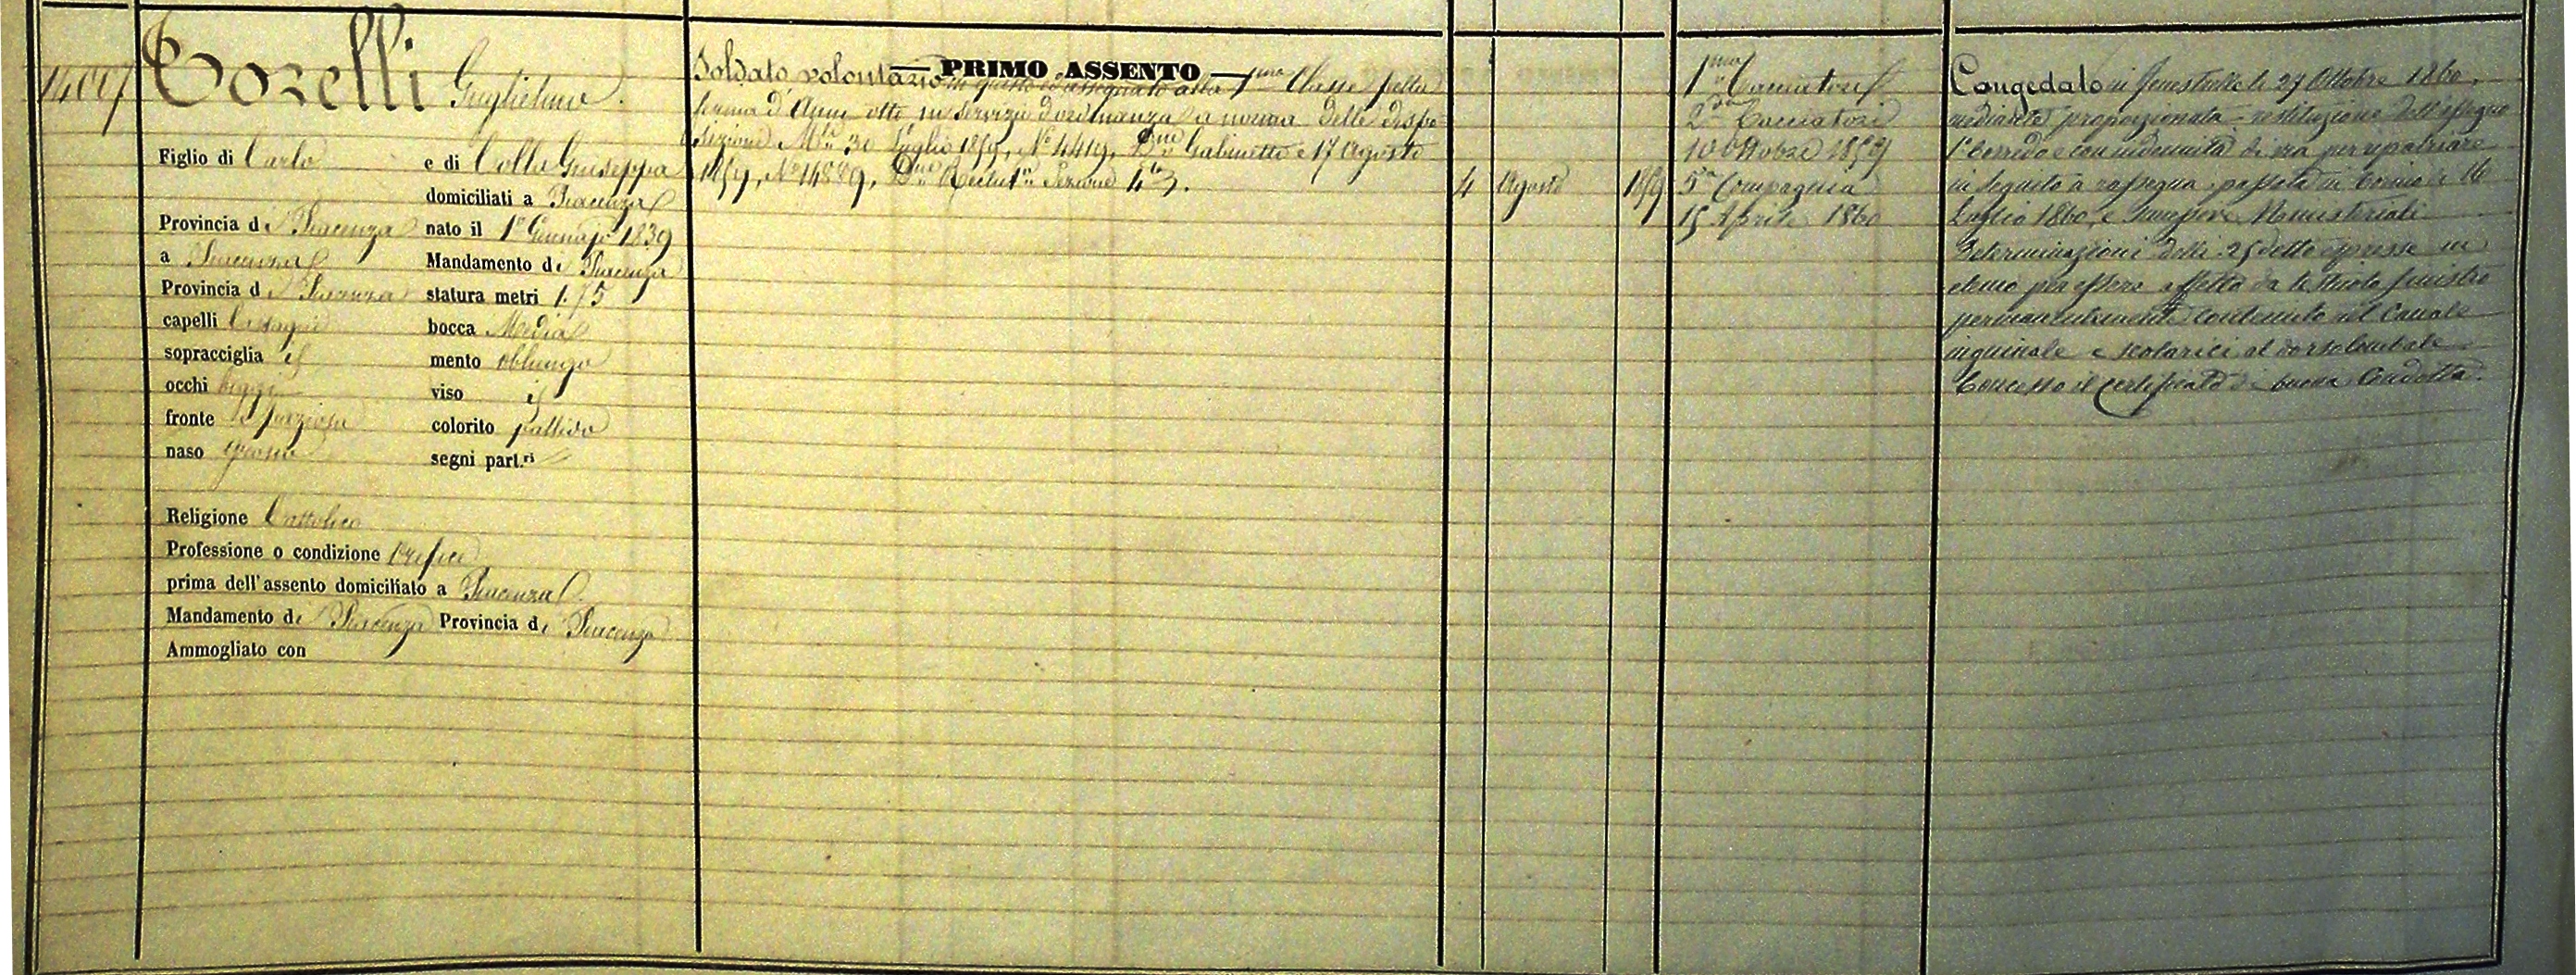 Torelli Guglielmo.
Figlio di Carlo e di Colla Giuseppa
domiciliati a Piacenza
Provincia di Piacenza nato il 1° Gennajo 1839
a Piacenza Mandamento di Piacenza
Provincia di Piacenza statura metri 1.75
capelli Castagni bocca Media
sopracciglia id mento oblungo
occhi bigi viso id
fronte spaziosa colorito pallido
naso grosso segni part.ri
Religione Cattolica
Professione o condizione Orefice
prima dell'assento domiciliato a Piacenza
Mandamento di Piacenza Provincia di Piacenza
Ammogliato con
— PRIMO ASSENTO —
Soldato volontario in questo ed assegnato alla 1ma Classe pella
ferma d'Anni otto in servizio d'ordinanza a norma delle dispo
sizioni Mli 30 Luglio 1859, N° 4419, Dne Gabinetto e 17 Agosto
1859, N° 14889, Dne Sezione
4 Agosto 1859
1mo Cacciatori
2do Cacciatori
10 Ottobre 1859
5a Compagnia
15 Aprile 1860
Congedato in Fenestrelle li 27 Ottobre 1860,
mediante proporzionata restituzione dell'assegno
1° Corredo e con indennità di via per ripatriare
in seguito a rassegna passata in li 16
Luglio 1860, e Ministeriali
Determinazioni delli 25 detto espresse in
elenco per essere affetto da testicolo sinistro
permanentemente contenuto nel Canale
inguinale e al dorso lombale
Concesso il certificato di buona Condotta.